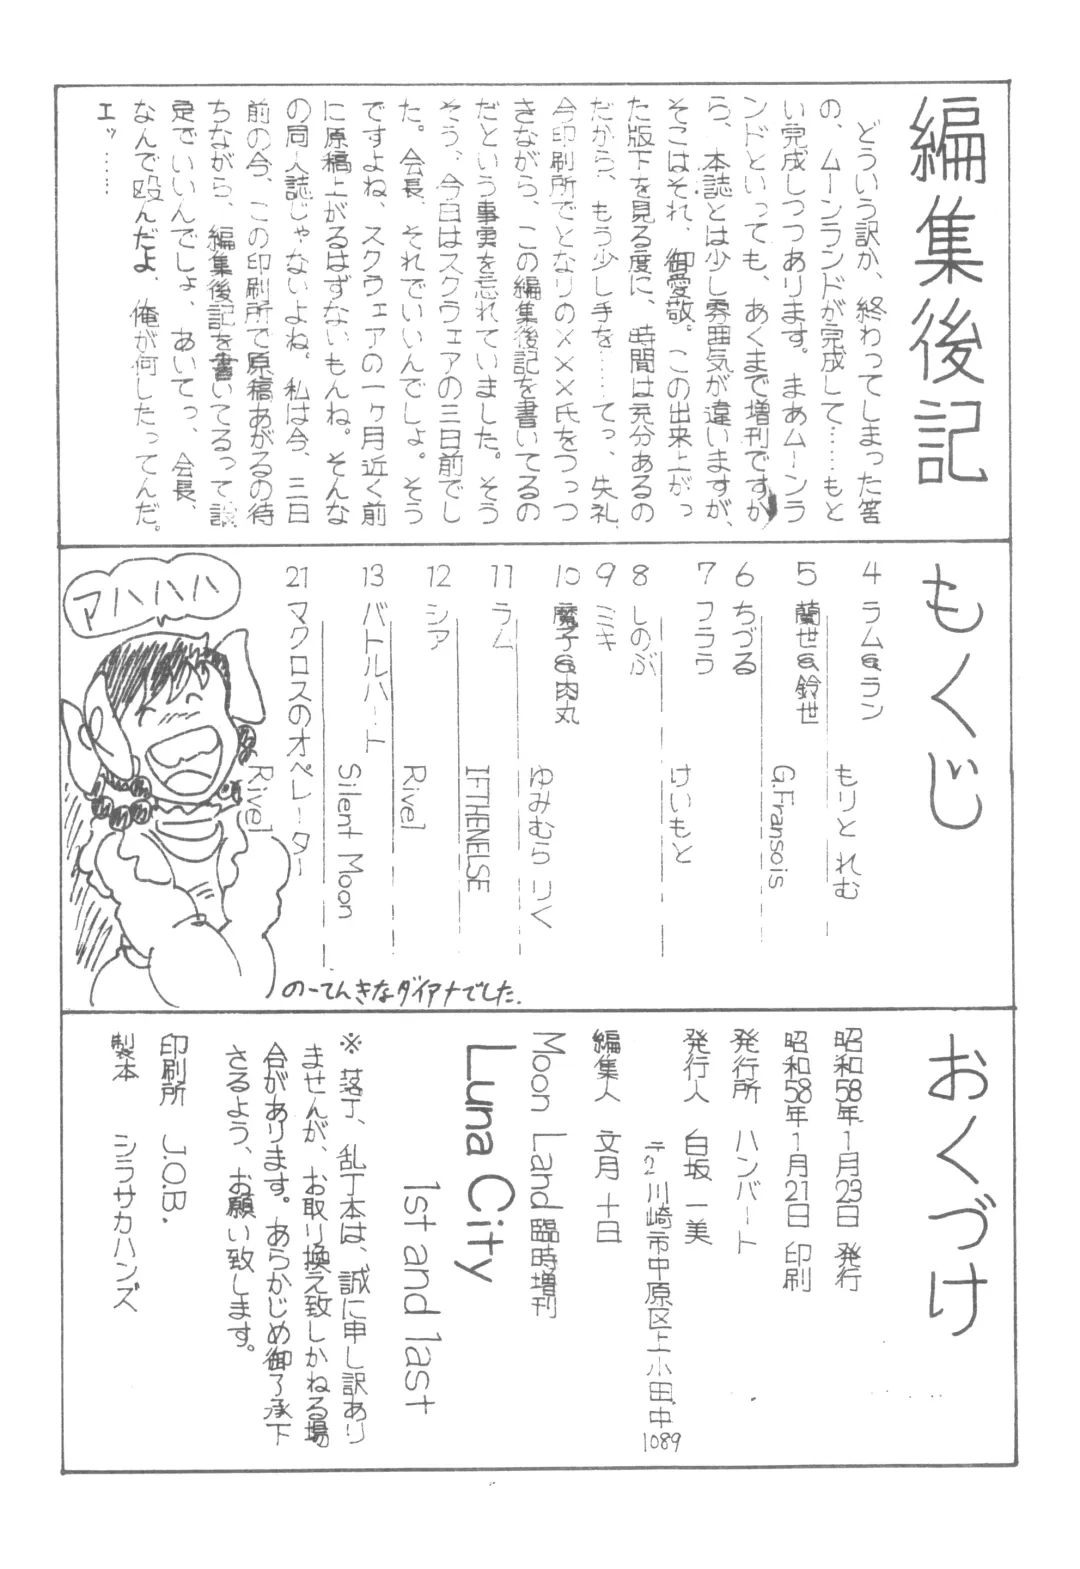 編集後記
どういう訳か、終わってしまった筈
の、ムーンランドが完成して……もと
い完成しつつあります。まあムーンラ
ンドといっても、あくまで増刊ですか
ら、本誌とは少し雰囲気が違いますが、
そこはそれ、御愛敬。この出来上がっ
た版下を見る度に、時間は充分あるの
だから、もう少し手を……てっ、失礼、
今印刷所でとなりの×××氏をつっつ
きながら、この編集後記を書いてるの
だという事実を忘れていました。そう
そう、今日はスクウェアの三日前でし
た。会長、それでいいんでしょ。そう
ですよね、スクウェアの一ヶ月近く前
に原稿上がるはずないもんね。そんな
の同人誌じゃないよね。私は今、三日
前の今、この印刷所で原稿あがるの待
ちながら、編集後記を書いてるって設
定でいいんでしょ、あいてっ、会長、
なんで殴んだよ、俺が何したってんだ。
エッ……
もくじ
4 ラム&ラン
もりと れむ
5 蘭世&鈴世
G.Fransois
6 ちづる
7 フララ
けいもと
8 しのぶ
9 ミキ
10 魔子&肉丸
ゆみむら りく
11 ラム
IFTHENELSE
12 シア
Rivel
13 バトルハート
Silent Moon
21 マクロスのオペレーター
Rivel
アハハハ
のーてんきなダイアナでした.
おくづけ
昭和58年1月23日 発行
昭和58年1月21日 印刷
発行所 ハンバート
発行人 白坂 一美
〒2 川崎市中原区上小田中1089
編集人 文月 十日
Moon Land臨時増刊
Luna City
1st and last
※落丁、乱丁本は、誠に申し訳あり
ませんが、お取り換え致しかねる場
合があります。あらかじめ御了承下
さるよう、お願い致します。
印刷所 J.O.B.
製本 シラサカハンズ